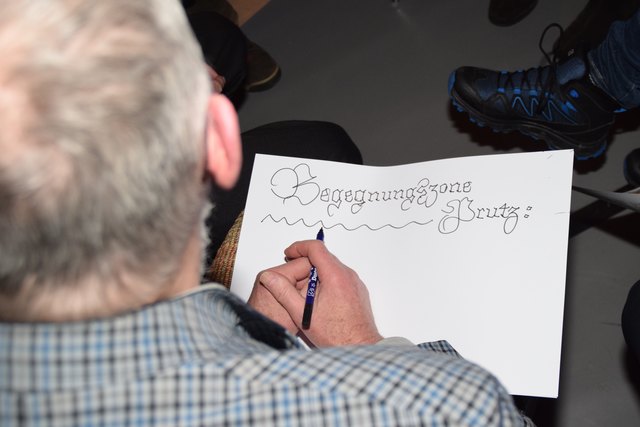 Begegnungszone
Prutz: